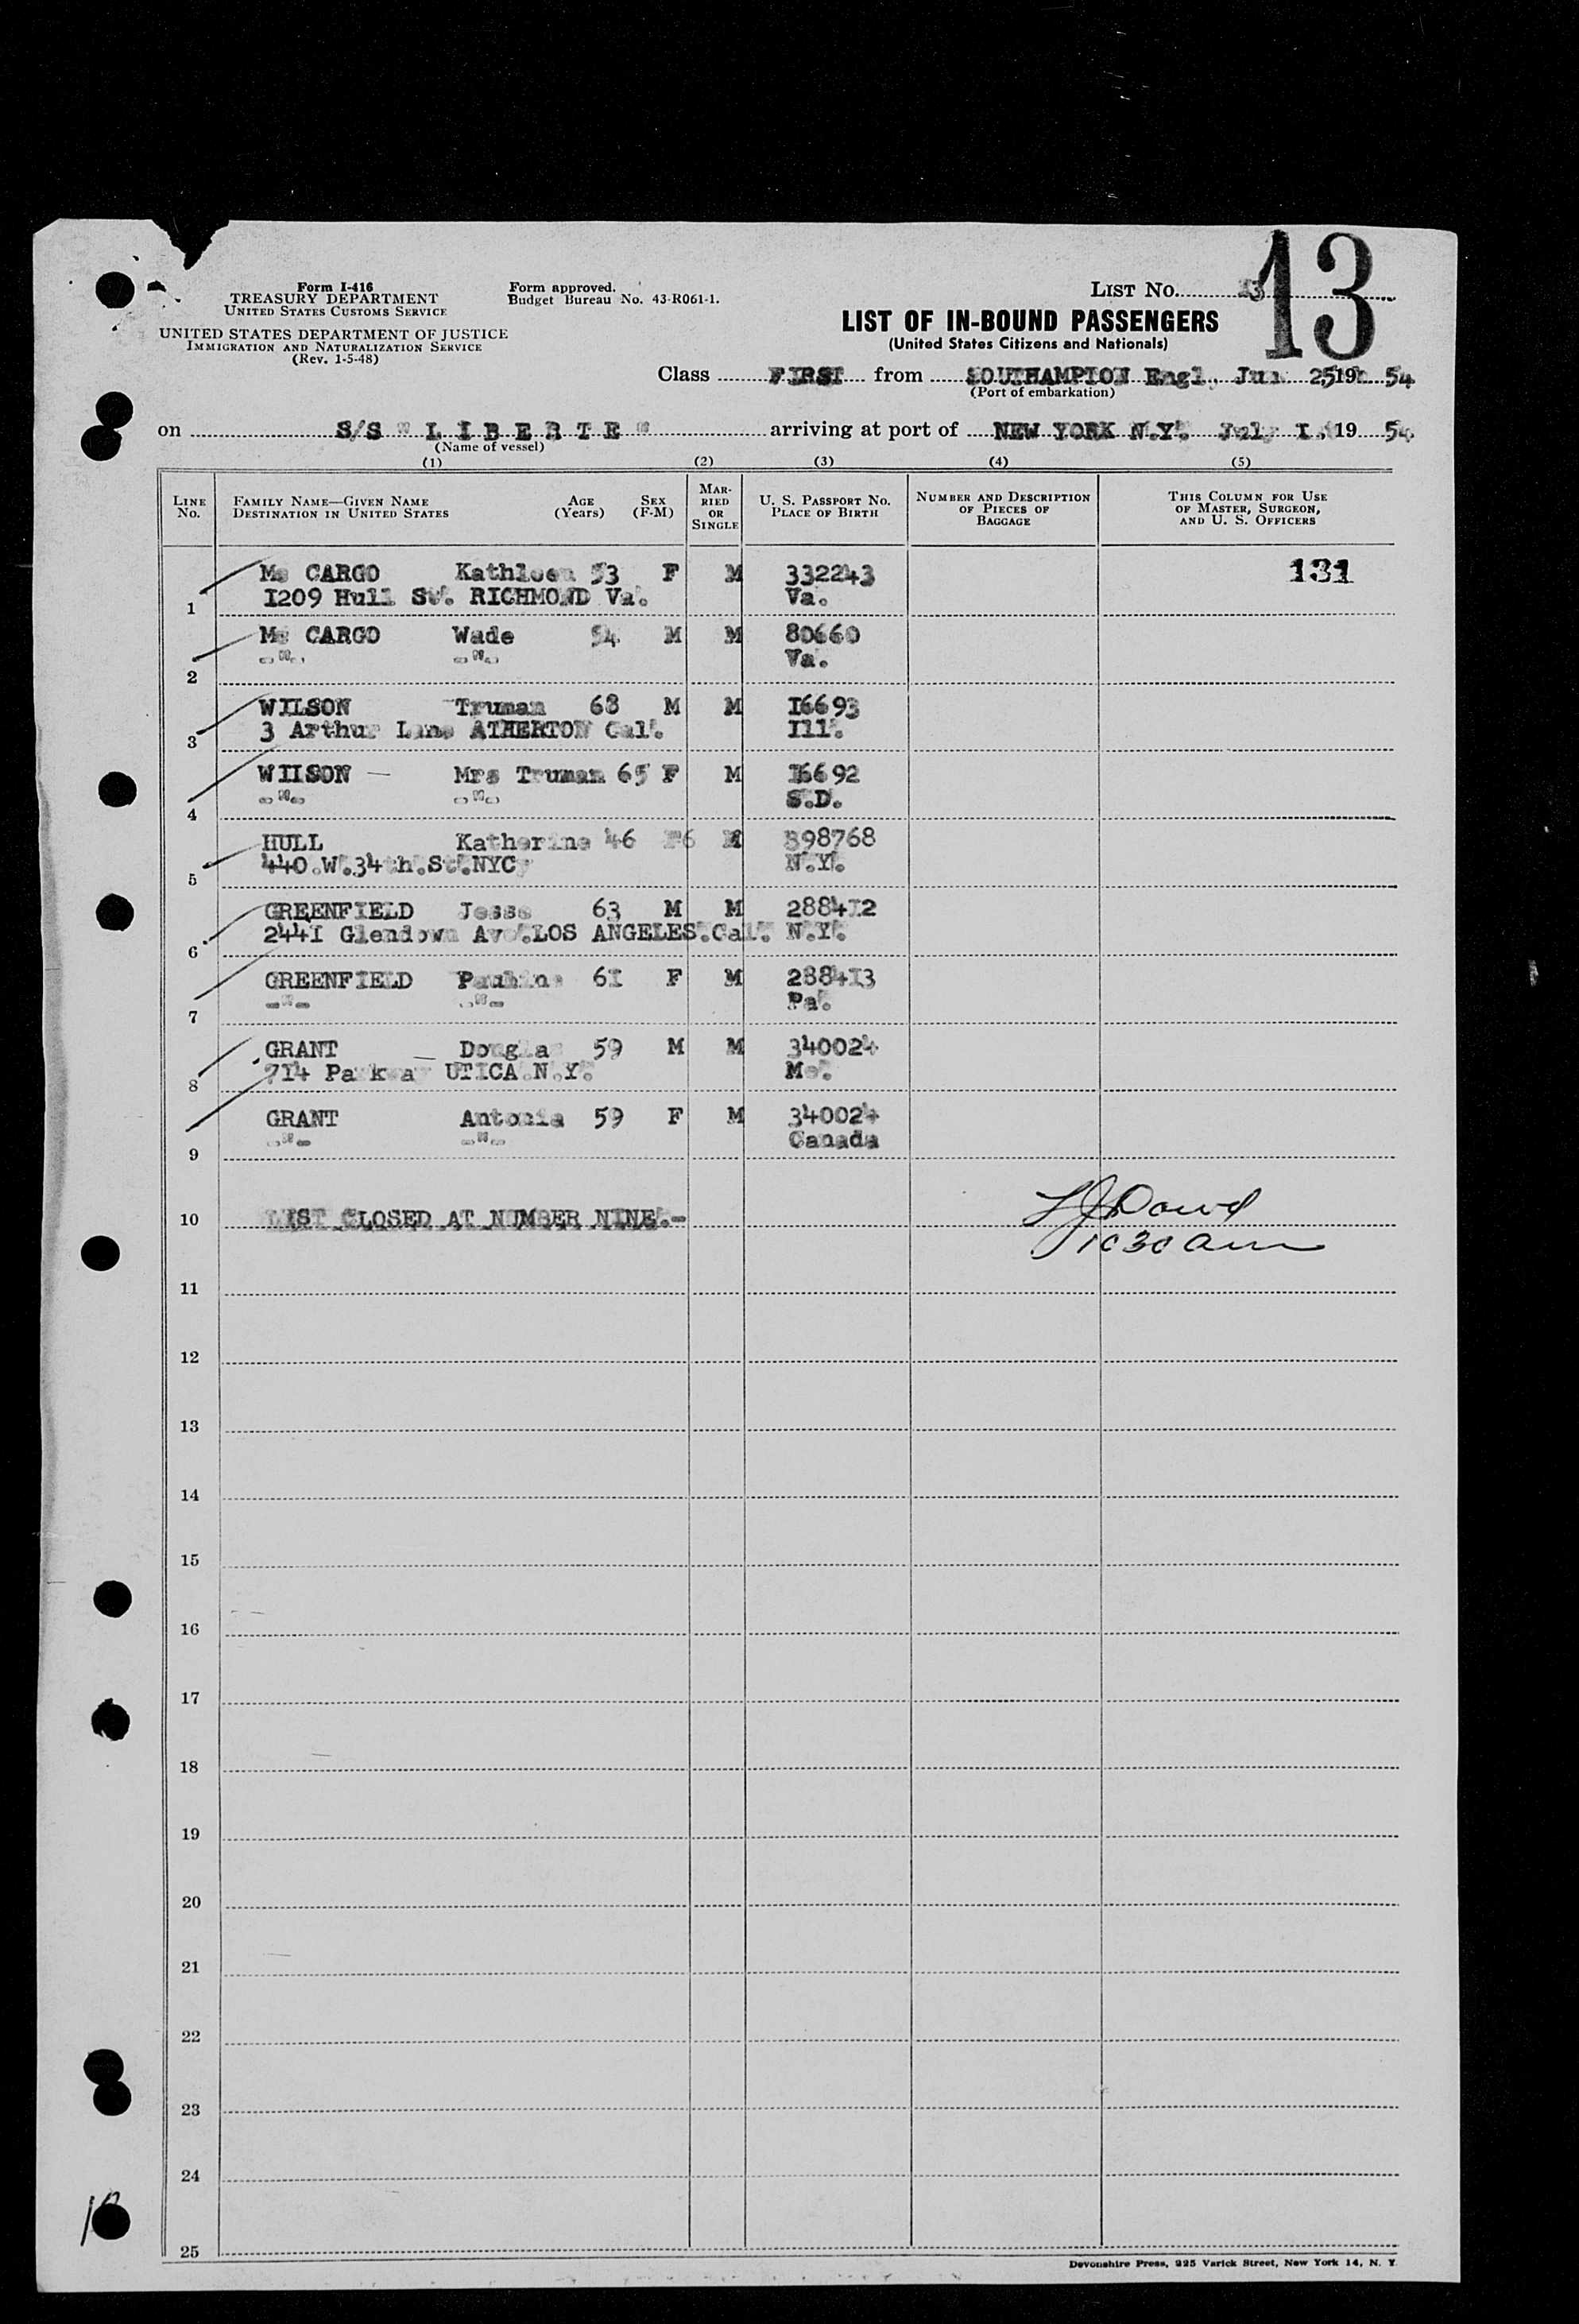 13
Form I-416
TREASURY DEPARTMENT
UNITED STATES CUSTOMS SERVICE
UNITED STATES DEPARTMENT OF JUSTICE
IMMIGRATION AND NATURALIZATION SERVICE
(Rev. 1-5-48)
Form approved.
Budget Bureau No. 43-R061-1.
LIST No. 3
LIST OF IN-BOUND PASSENGERS
(United States Citizens and Nationals)
Class FIRST from SOUTHAMPTON Engl., Jun 25 19 54
(Port of embarkation)
on S/S " L I B E R T E " arriving at port of NEW YORK N.Y. July I. 19 54
(Name of vessel)
(1) (2) (3) (4) (5)
LINE No. FAMILY NAME—GIVEN NAME DESTINATION IN UNITED STATES AGE (Years) SEX (F-M) MARRIED OR SINGLE U. S. PASSPORT NO. PLACE OF BIRTH NUMBER AND DESCRIPTION OF PIECES OF BAGGAGE THIS COLUMN FOR USE OF MASTER, SURGEON, AND U. S. OFFICERS
Mc CARGO Kathleen 53 F M 332243 131
1 1209 Hull St. RICHMOND Va. Va.
Mc CARGO Wade 54 M M 80660
2 -"- -"- Va.
WILSON Truman 68 M M I6693
3 3 Arthur Lane ATHERTON Cal. Ill.
WIISON — Mrs Truman 65 F M I6692
4 -"- -"- S.D.
HULL Katherine 46 F6 M 398768
5 440.W.34th.St.NYC N.Y.
GREENFIELD Jesse 63 M M 2884I2
6 244I Glendown Ave.LOS ANGELES.Cal. N.Y.
GREENFIELD Pauline 6I F M 2884I3
7 -"- -"- Pa.
GRANT — Douglas 59 M M 340024
8 714 Parkway UTICA.N.Y. Me.
GRANT Antonia 59 F M 340024
9 -"- -"- Canada
10 LIST CLOSED AT NUMBER NINE.-
Dowd
10 30 am
11
12
13
14
15
16
17
18
19
20
21
22
23
24
25
Devonshire Press, 225 Varick Street, New York 14, N. Y.